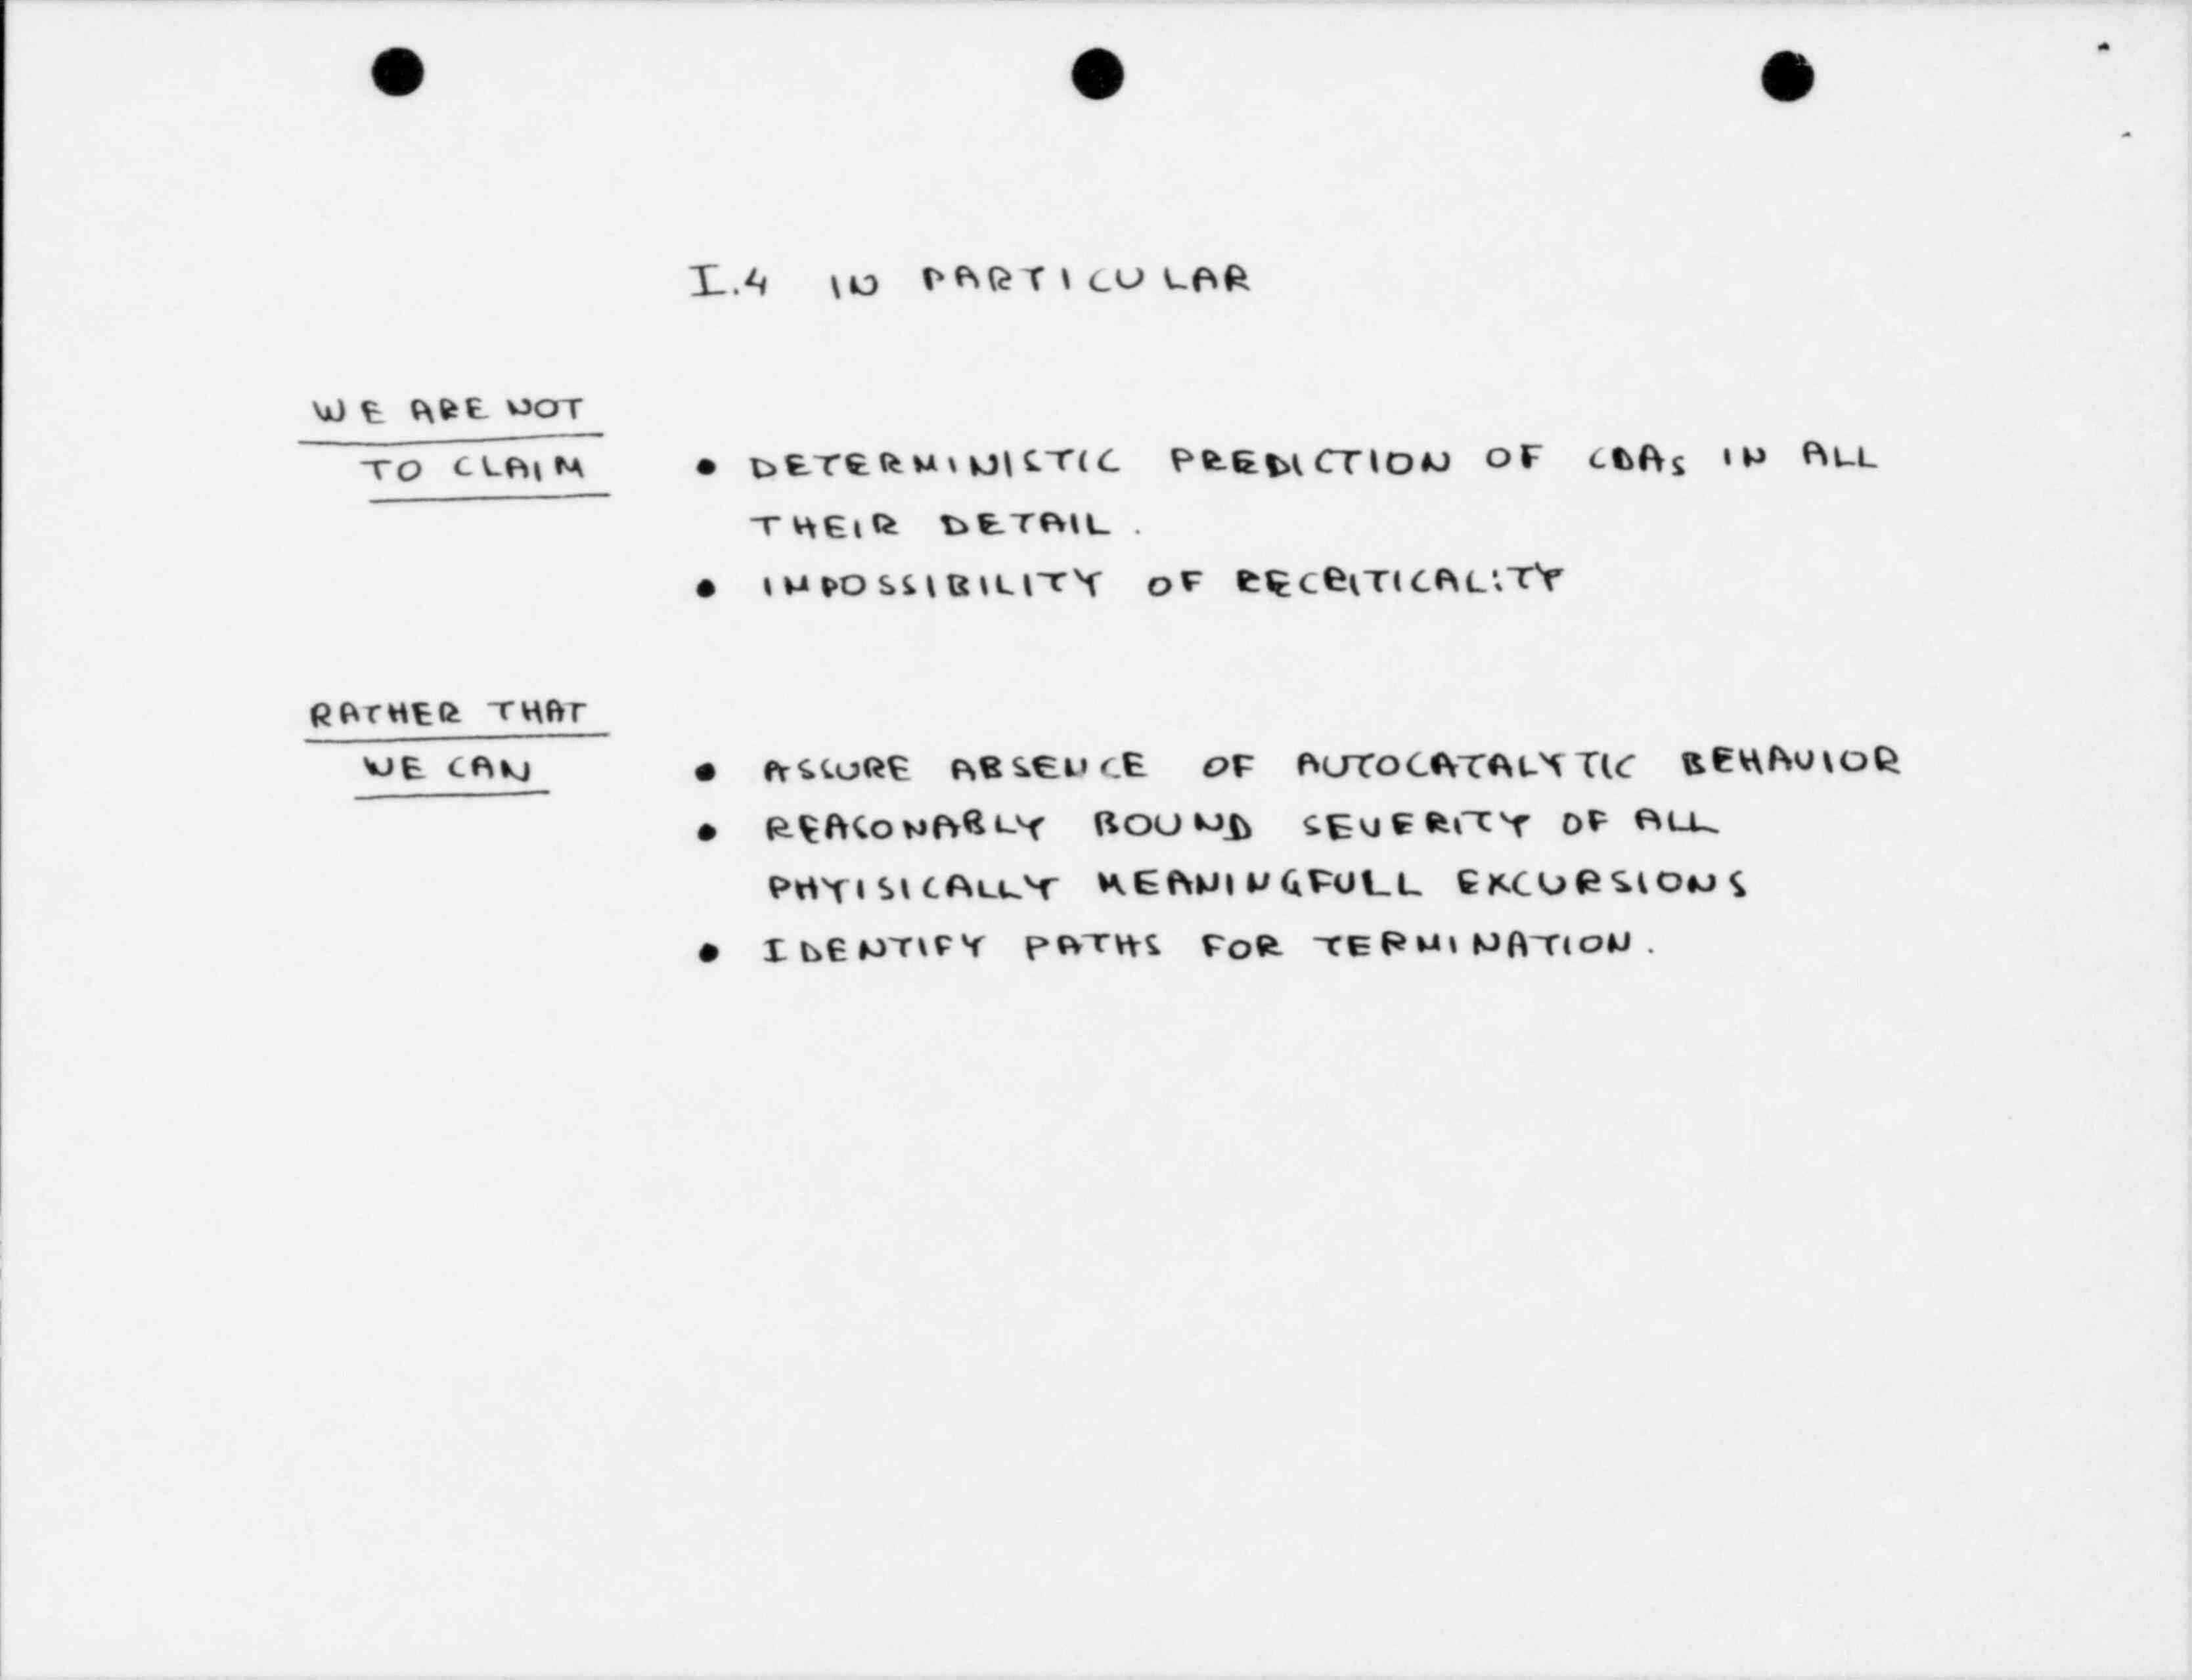 I.4 IN PARTICULAR
WE ARE NOT
TO CLAIM
• DETERMINISTIC PREDICTION OF CDAs IN ALL
THEIR DETAIL.
• IMPOSSIBILITY OF RECRITICALITY
RATHER THAT
WE CAN
• ASSURE ABSENCE OF AUTOCATALYTIC BEHAVIOR
• REASONABLY BOUND SEVERITY OF ALL
PHYISICALLY MEANINGFULL EXCURSIONS
• IDENTIFY PATHS FOR TERMINATION.